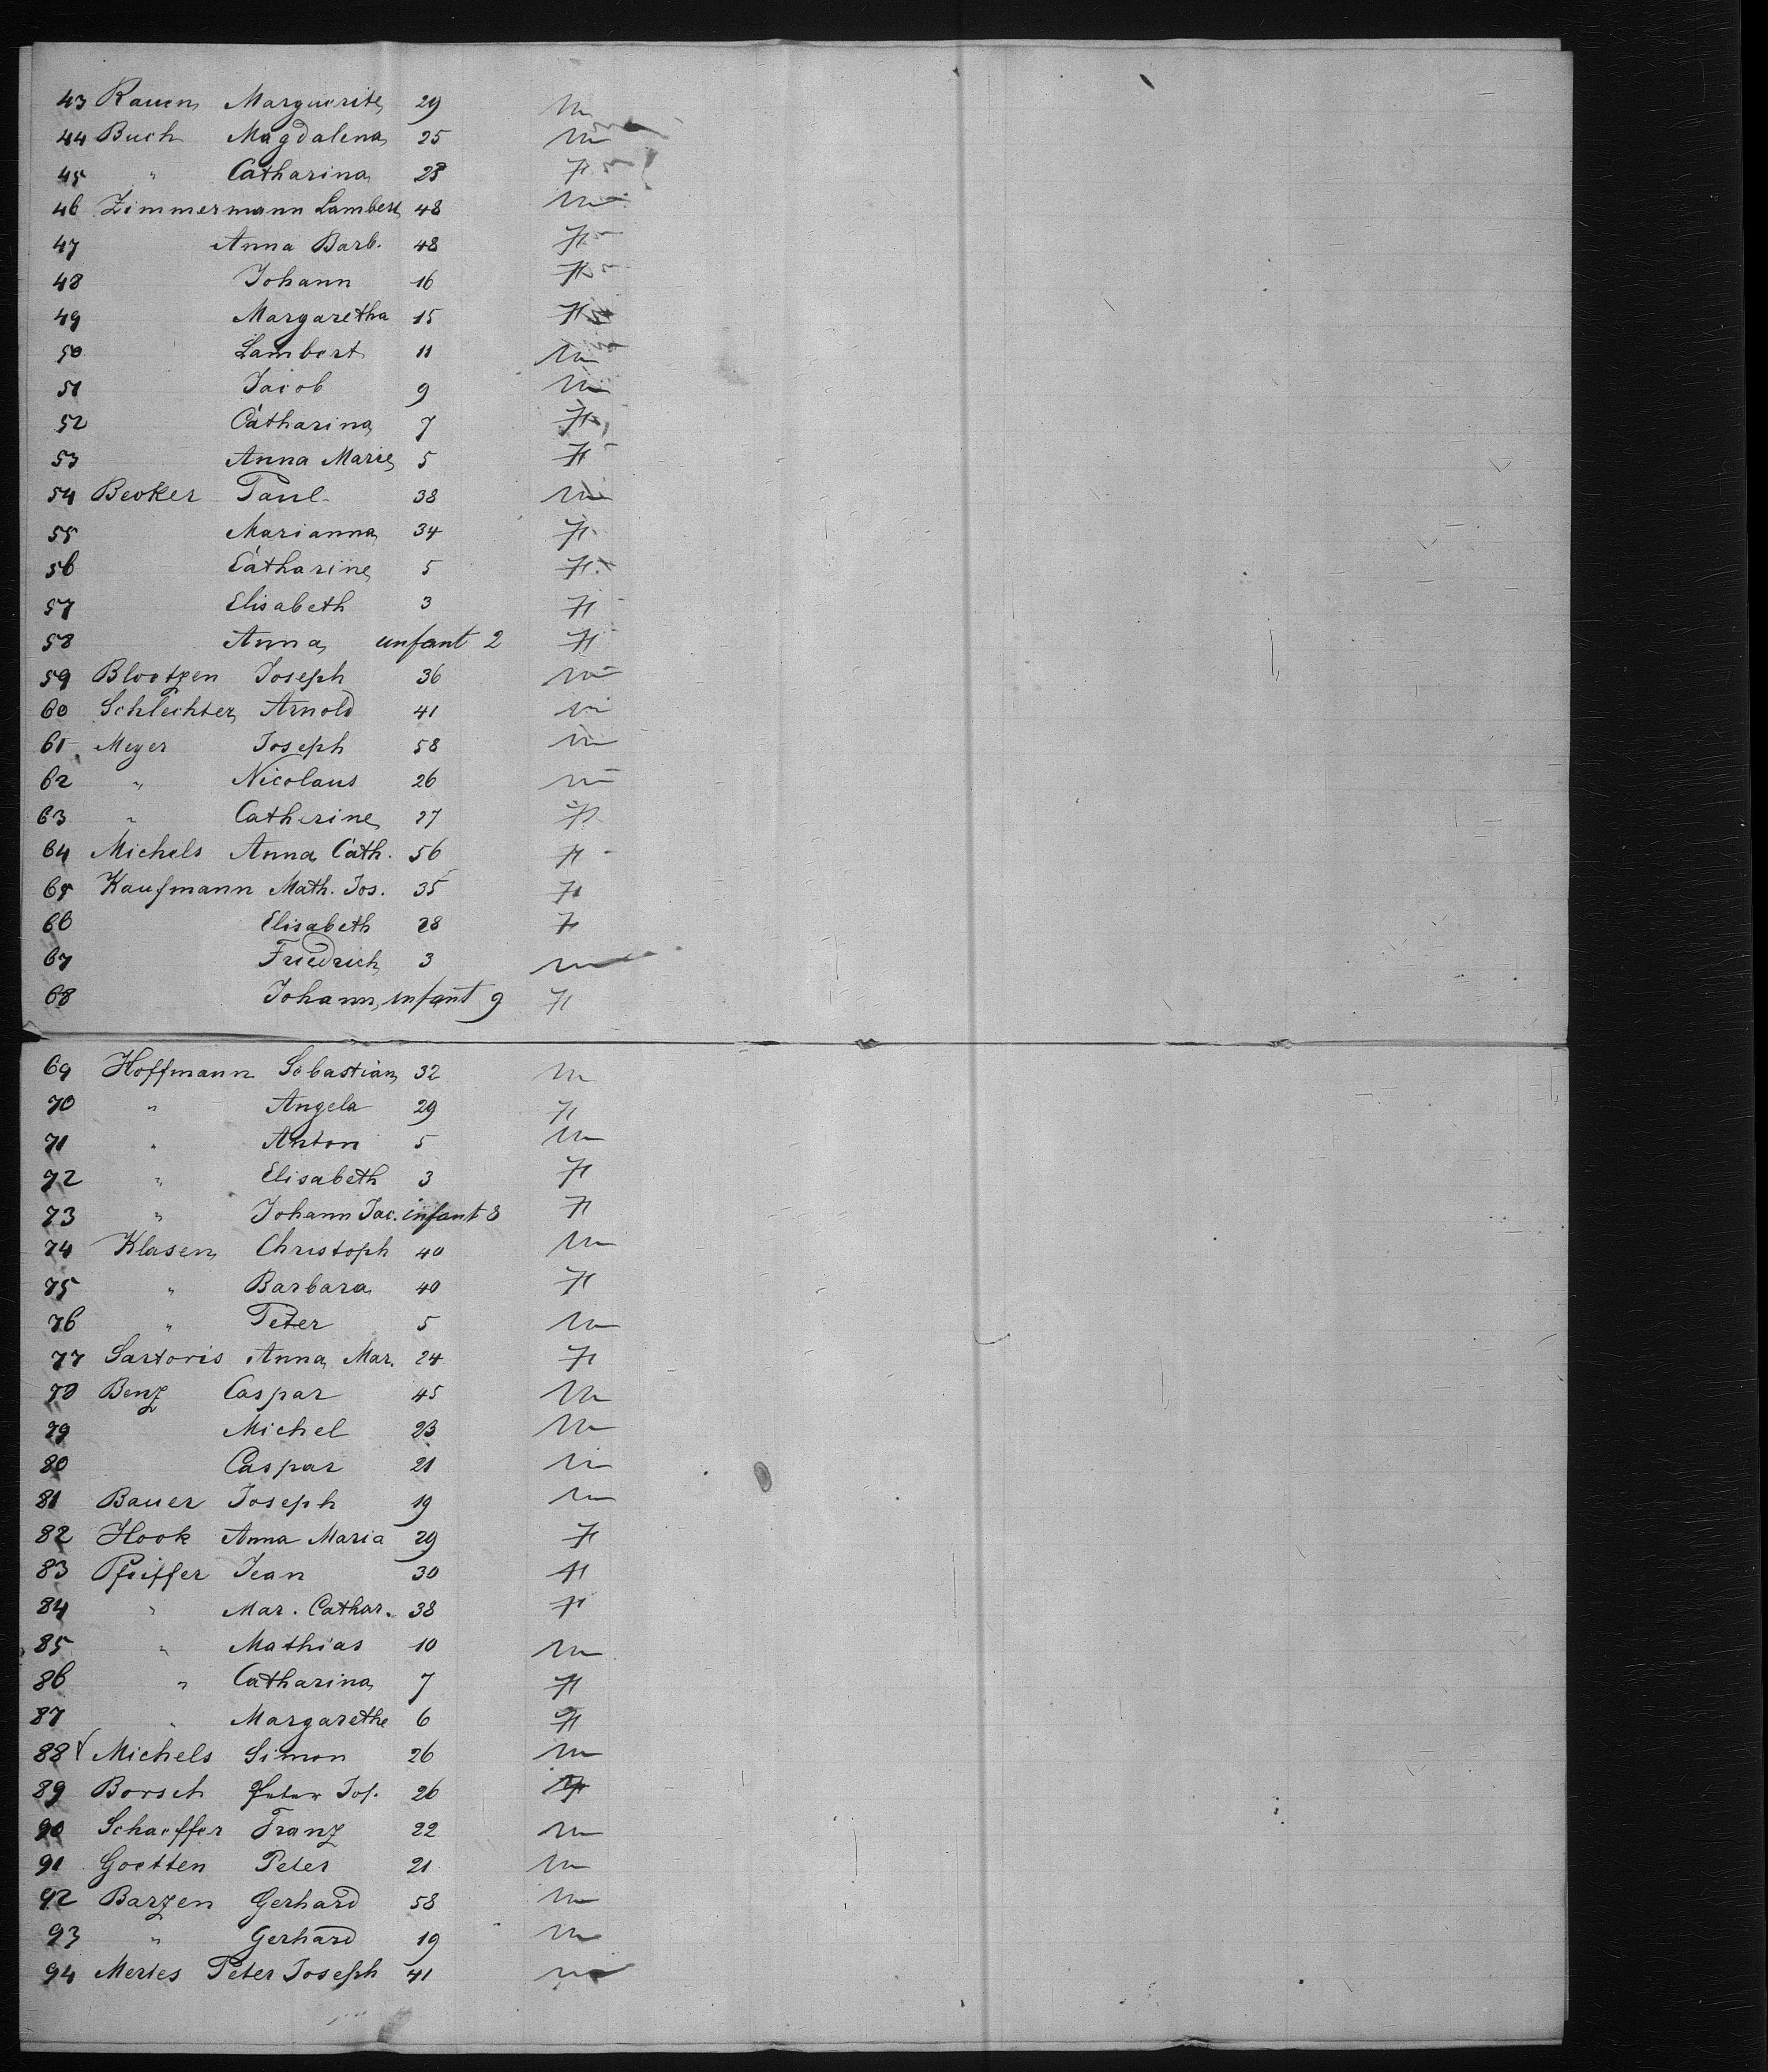 43 Rauen Marguerite 29 m
44 Buch Magdalena 25 m
45 " Catharina 28 F
46 Zimmermann Lambert 48 m
47 Anna Barb. 48 F
48 Johann 16 F
49 Margaretha 15 F
50 Lambert 11 m
51 Jacob 9 m
52 Catharina 7 F
53 Anna Marie 5 F
54 Becker Paul 38 m
55 Marianna 34 F
56 Catharine 5 F
57 Elisabeth 3 F
58 Anna infant 2 F
59 Blootzen Joseph 36 m
60 Schlechter Arnold 41 m
61 Meyer Joseph 58 m
62 " Nicolaus 26 m
63 " Catherine 27 F
64 Michels Anna Cath. 56 F
65 Kaufmann Math. Jos. 35 F
66 Elisabeth 28 F
67 Friedrich 3 m
68 Johann, infant 9 F
69 Hoffmann Sebastian 32 m
70 " Angela 29 F
71 " Anton 5 m
72 " Elisabeth 3 F
73 " Johann Jac. infant 8 F
74 Klasen Christoph 40 m
75 " Barbara 40 F
76 " Peter 5 m
77 Sartoris Anna Mar. 24 F
78 Benz Caspar 45 m
79 Michel 23 m
80 Caspar 21 m
81 Bauer Joseph 19 m
82 Hook Anna Maria 29 F
83 Pfeiffer Jean 30 F
84 " Mar. Cathar. 38 F
85 " Mathias 10 m
86 " Catharina 7 F
87 " Margarethe 6 F
88 Michels Simon 26 m
89 Borsch Peter Jos. 26
90 Schaeffer Franz 22 m
91 Goetten Peter 21 m
92 Barzen Gerhard 58 m
93 " Gerhard 19 m
94 Mertes Peter Joseph 41 m